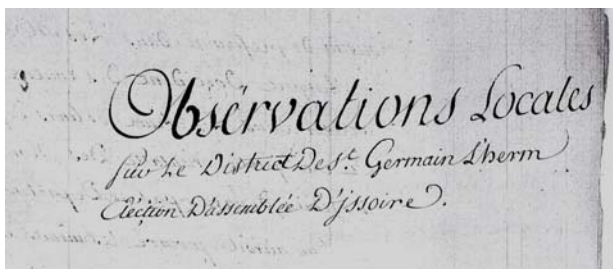 Obsérvations Locales
sur Le District De st. Germain L'herm
Election D'assemblée D'jssoire.